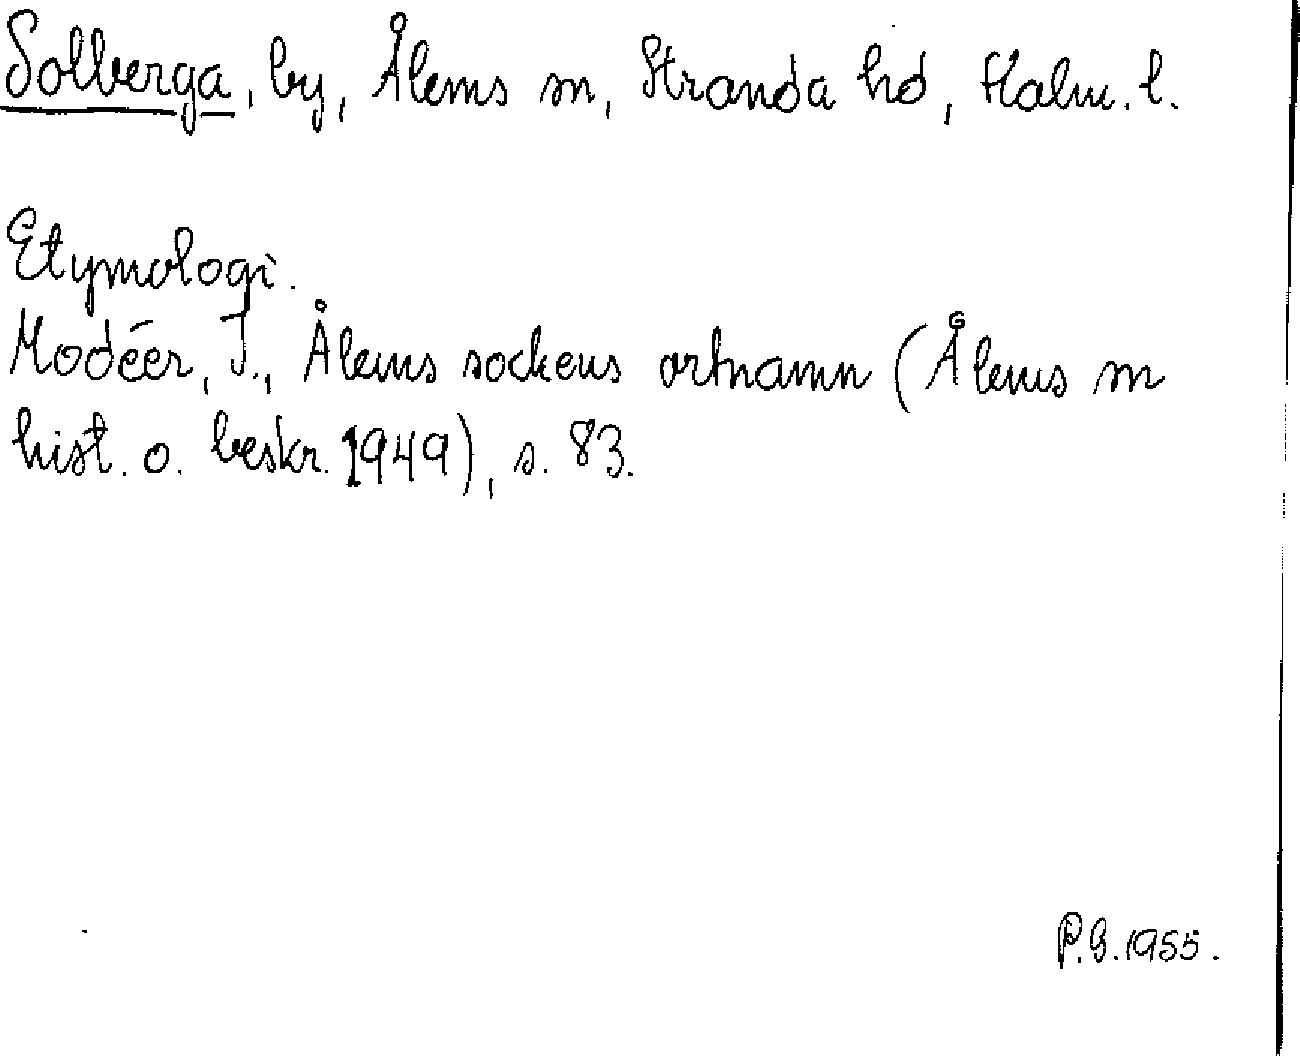 Solberga, by, Ålems sn, Stranda hd, Kalm. l.
Etymologi.
Modéer, I., Ålems sockens ortnamn (Ålems sn
hist. o. beskr. 1949), s. 83.
P.G. 1955.